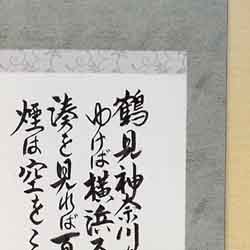 鶴見神奈川
ゆけば横浜
湊を見れば百
煙は空をこ